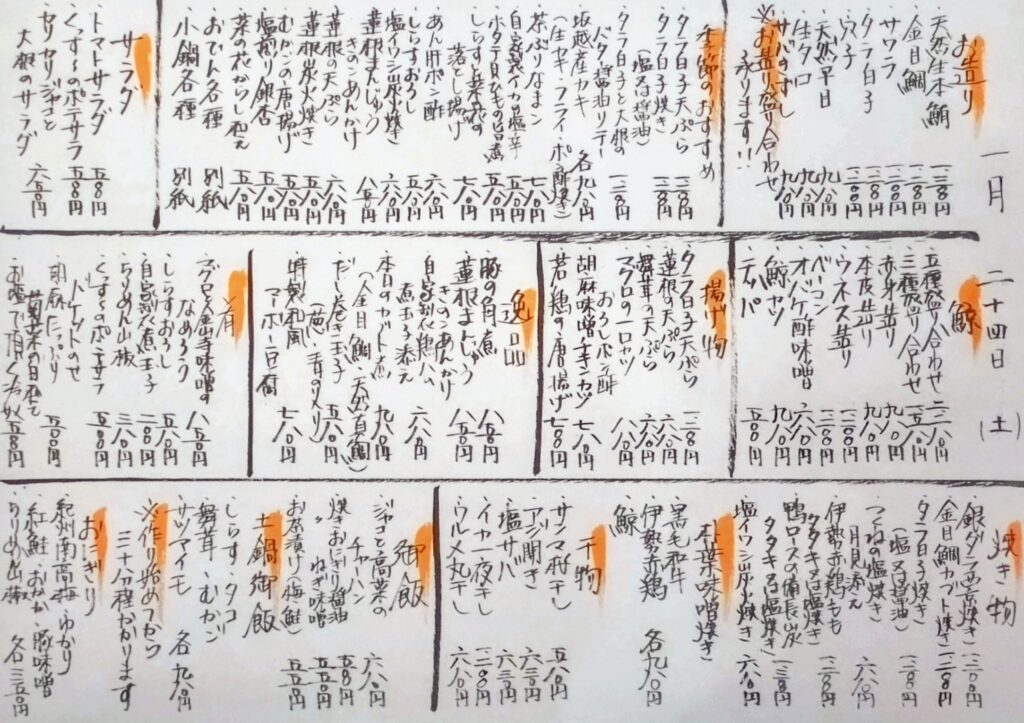 一月 二十四日(土)
お造り
・天然生本鮪 一二八〇円
・金目鯛 一二八〇円
・サワラ 一二八〇円
・タラ白子 一二八〇円
・穴子
・天然平目 九八〇円
・生タコ 九八〇円
・サバきずし 九八〇円
※お造り盛り合わせ
承ります!!
季節のおすすめ
・タラ白子天ぷら 一二八〇円
・タラ白子焼き
(塩又は醤油) 一二八〇円
・タラ白子と大根の
バター醤油ソテー 一二八〇円
・坂越産カキ
(生ガキ・フライ・ポン酢) 各九八〇円
・茶ぶりなまこ 七八〇円
・自家製イカの塩辛 五五〇円
・ホタテ貝ひもの旨煮 五五〇円
・しらす真丈の
落とし揚げ 七八〇円
・あん肝ポン酢
・しらすおろし
・塩イワシ炭火焼き
・蓮根まんじゅう
きのこあんかけ 八五〇円
・蓮根の天ぷら
・蓮根炭火焼き
・むかごの唐揚げ 五五〇円
・塩煎り銀杏 五五〇円
・菜の花からし和え 五五〇円
・おでん各種 別紙
・小鍋各種 別紙
サラダ
・トマトサラダ 五五〇円
・くつすぐのポテサラ 五五〇円
・セリカリジャコと
大根のサラダ 六五〇円
鯨
・五種盛り合わせ
・三種盛り合わせ
・赤身造り
・本皮造り 九八〇円
・ウネス造り
・ベーコン
・オバケ酢味噌 六八〇円
・鯨カツ 九八〇円
・テッパ
揚げ物
・タラ白子天ぷら 一二八〇円
・蓮根の天ぷら 六八〇円
・舞茸の天ぷら 六八〇円
・マグロの一口カツ
おろしポン酢
・胡麻味噌チキンカツ 七八〇円
・若鶏の唐揚げ 七八〇円
逸品
・豚の角煮 八五〇円
・蓮根まんじゅう
きのこあんかけ 八五〇円
・自家製煮鶏ハム
煮玉子添え 六八〇円
・本日のカブト煮 九八〇円
(金目鯛、天然真鯛)
・だし巻き玉子
(葱、青のり) 六五〇円
・特製和風
マーボー豆腐 七八〇円
肴
・マグロと金山寺味噌の
なめろう 八五〇円
・しらすおろし 五五〇円
・自家製煮玉子 二八〇円
・ちりめん山椒 三八〇円
トーストのせ 五五〇円
・胡麻たっぷり
青菜の白和え 五五〇円
・お塩で頂く冷奴 五五〇円
焼き物
・銀ダラ西京焼き
・金目鯛カブト焼き
・タラ白子焼き
(塩又は醤油) 一二八〇円
・つくねの塩焼き
月見添え 六八〇円
・伊勢赤鶏もも
タタキ又は塩焼き 一二八〇円
・鴨ロースの備長炭
タタキ又は塩焼き 一二八〇円
・塩イワシ炭火焼き 六八〇円
朴葉味噌焼き
・黒毛和牛
・伊勢赤鶏
・鯨 各九八〇円
干物
・サンマ丸干し
・アジ開き
・塩サバ
・イカ一夜干し 一二八〇円
・ウルメ丸干し 六八〇円
御飯
・ジャコと高菜の
チャーハン 六八〇円
・焼きおにぎり醤油 五五〇円
・〃 ねぎ味噌 五五〇円
・お茶漬け(梅・鮭) 五五〇円
土鍋御飯
・しらす ・タコ
・舞茸 ・むかご
・サツマイモ 各九八〇円
※作り始めてから
三十分程かかります
おにぎり
・紀州南高梅 ・ゆかり
・紅鮭 ・おかか ・豚味噌
・ちりめん山椒 各三五〇円